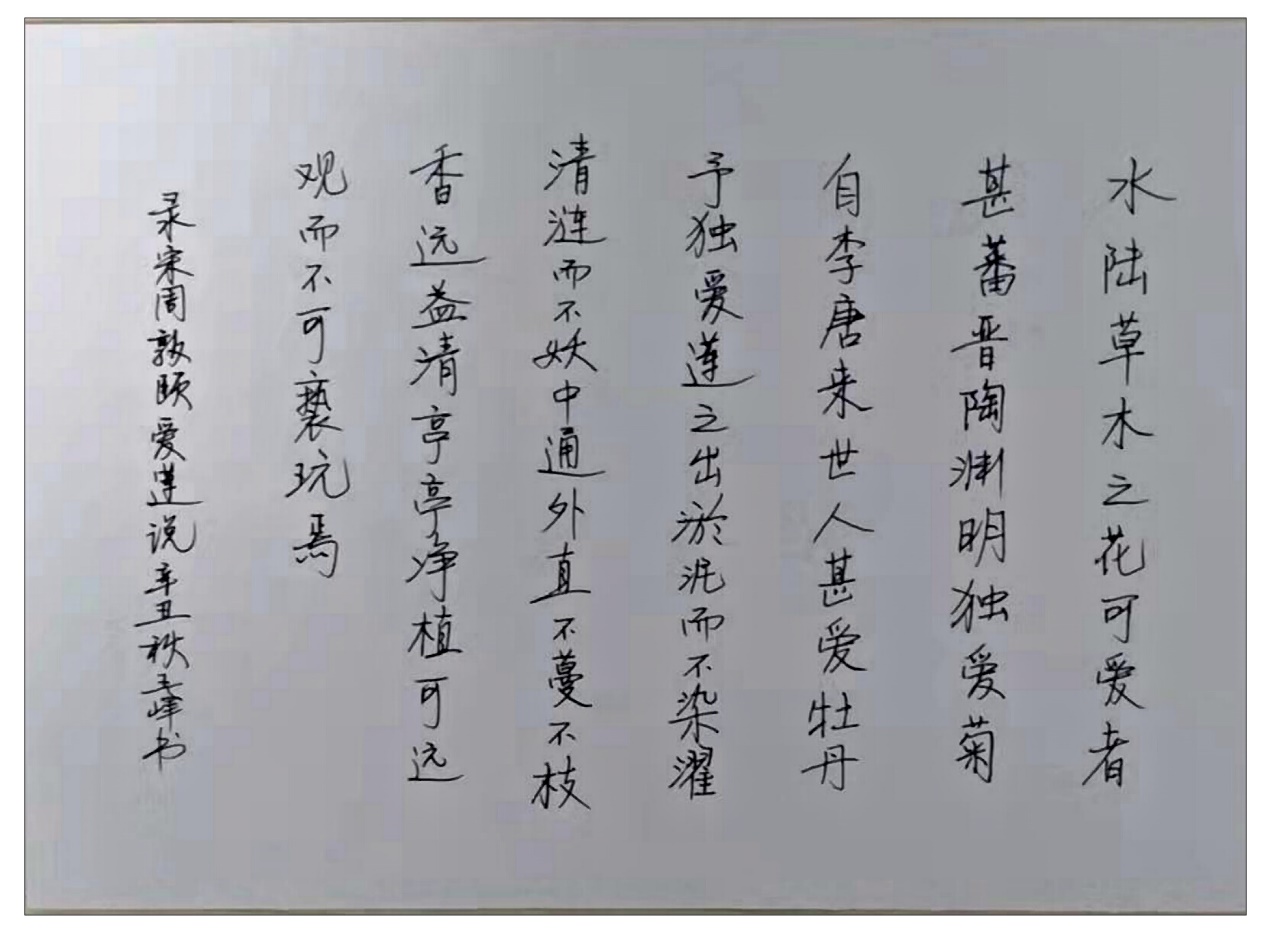 水陆草木之花可爱者
甚蕃晋陶渊明独爱菊
自李唐来世人甚爱牡丹
予独爱莲之出淤泥而不染濯
清涟而不妖中通外直不蔓不枝
香远益清亭亭净植可远
观而不可亵玩焉
录宋周敦颐爱莲说辛丑秩玉峰书